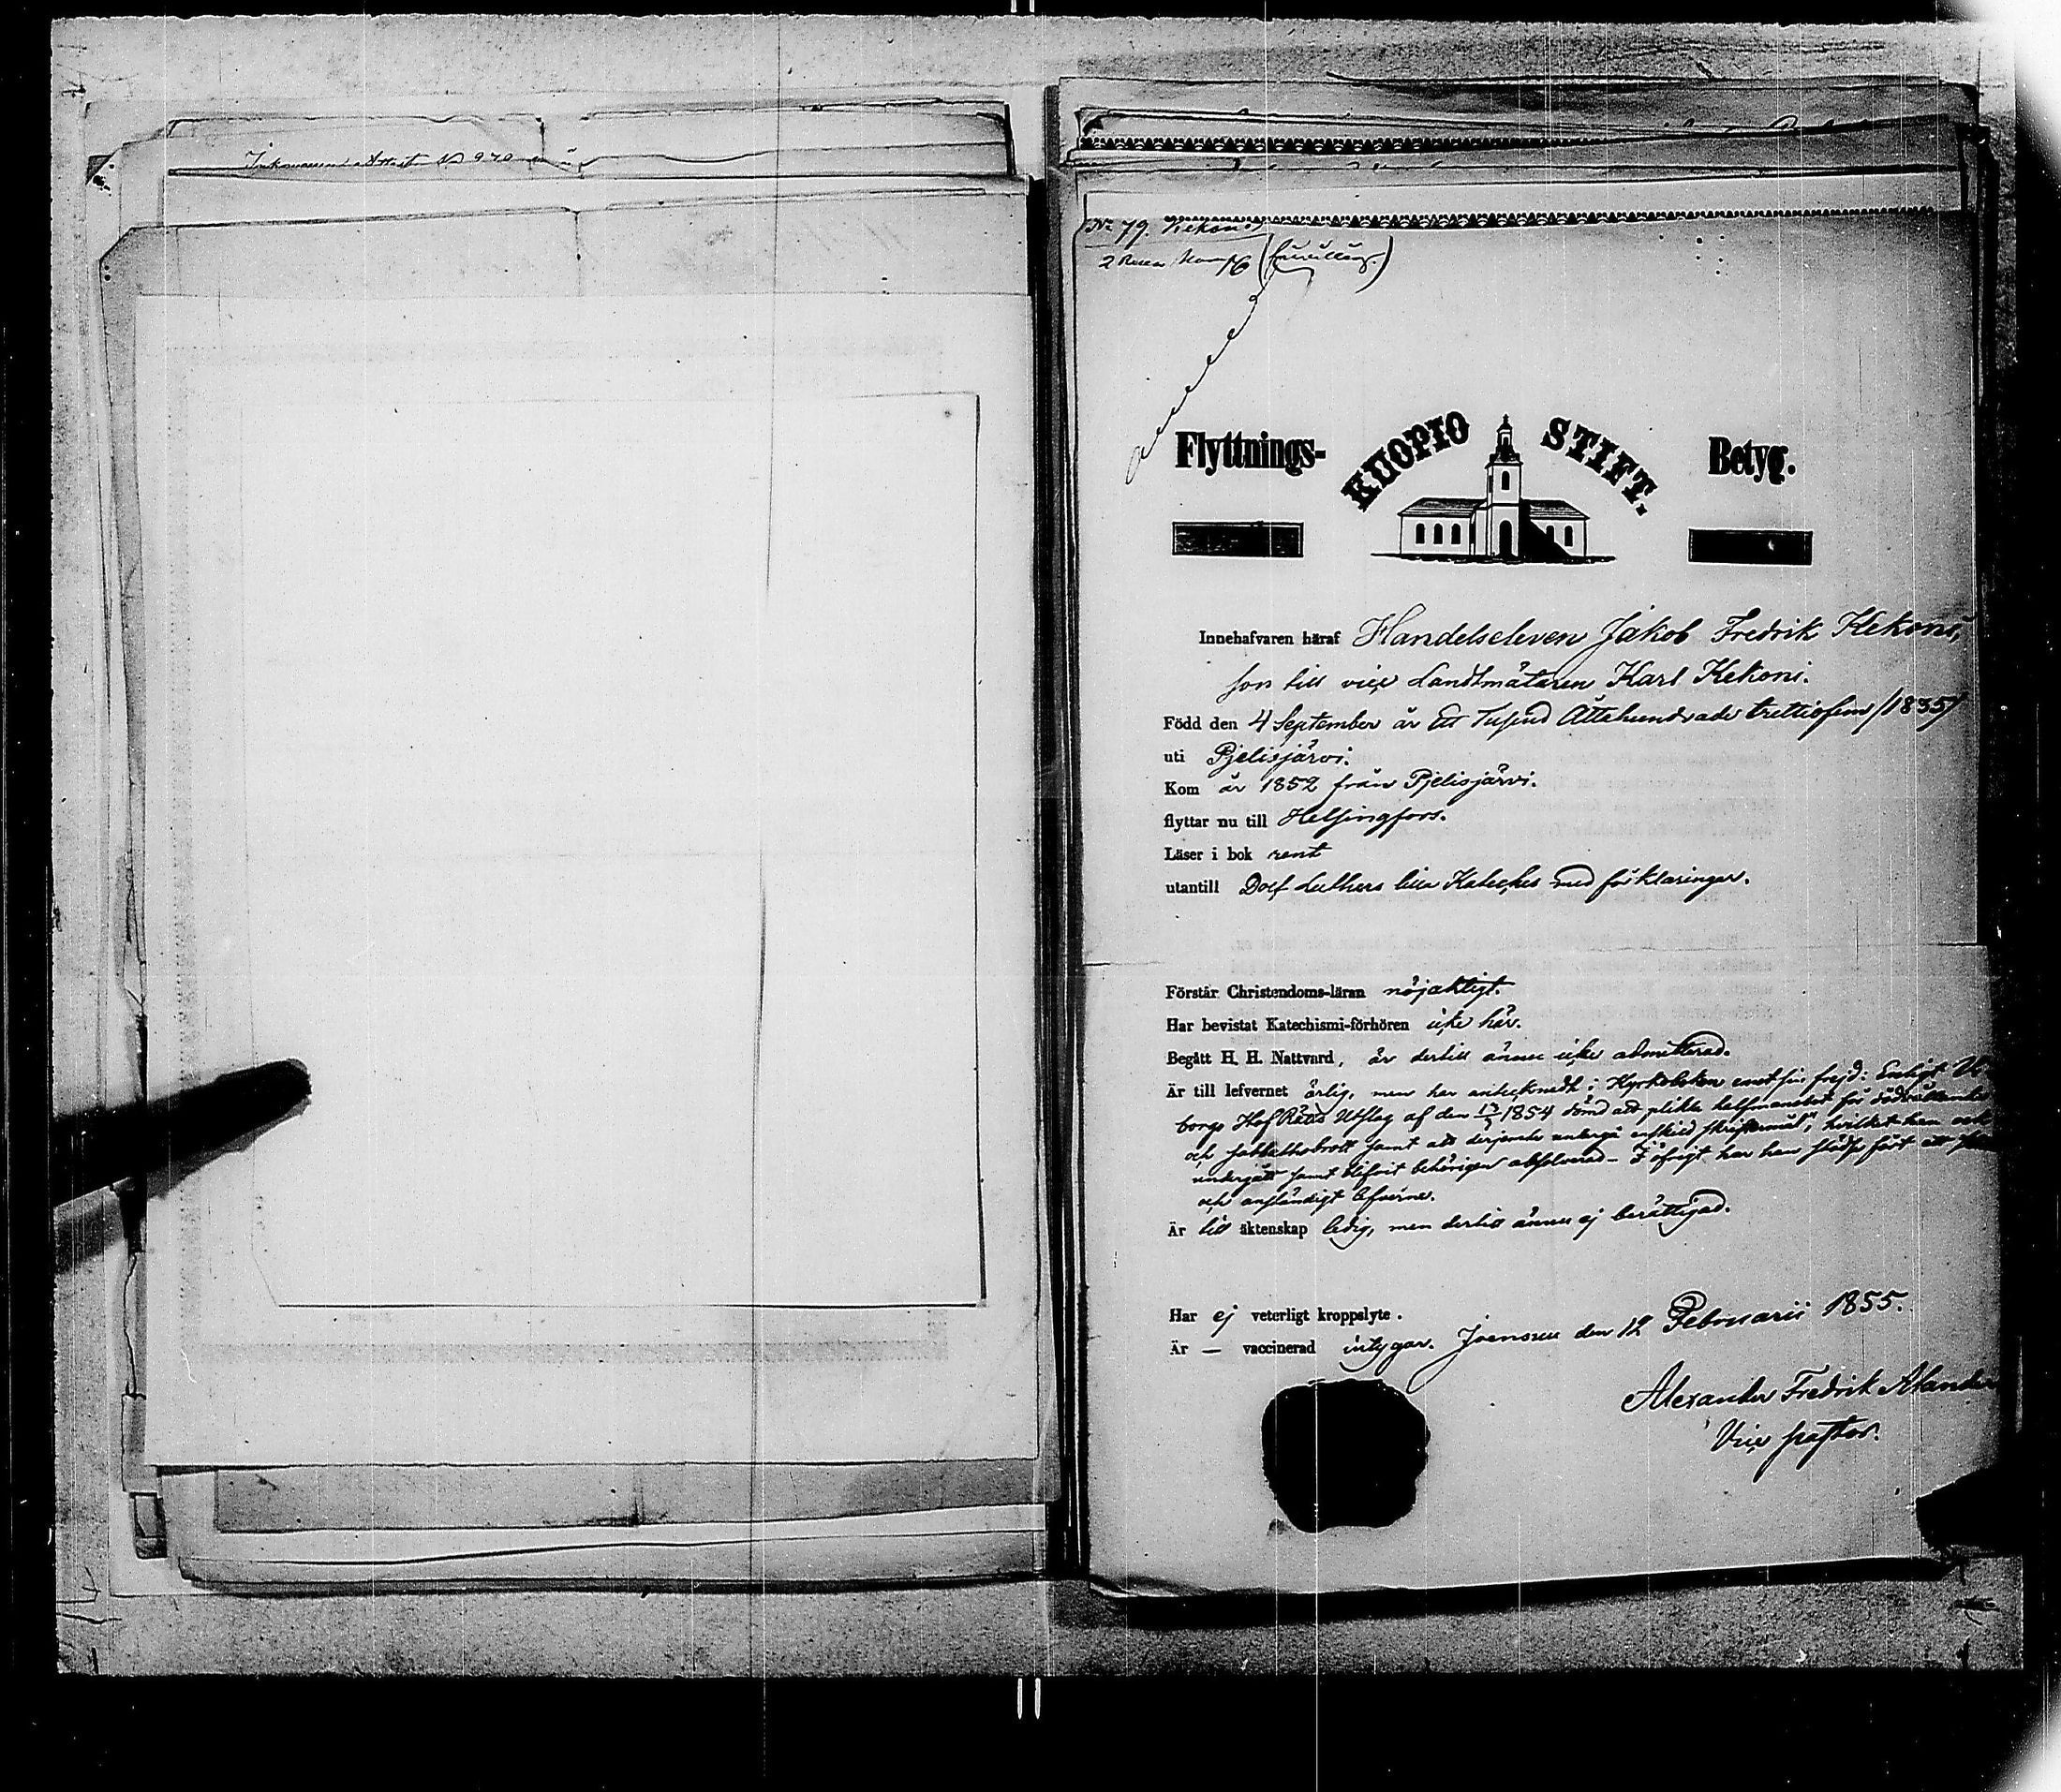 Inkommende Attest No 970
No 79. Kekoni
2 Resen
Flyttnings- KUOPIO STIFT. Betyg.
Innehafvaren häraf Handelseleven Jakob Fredrik Kekoni,
son till vice Landtmätaren Karl Kekoni.
Född den 4 September år Ett Tusend Åttahundrade trettiofem /1835/
uti Pjelisjärvi.
Kom år 1852 från Pjelisjärvi.
flyttar nu till Helsingfors.
Läser i bok rent
utantill Doct Luthers lilla Kateches med förklaringar.
Förstår Christendoms-läran nöjaktigt.
Har bevistat Katechismi-förhören icke här.
Begått H. H. Nattvard, är dertill ännu icke admitterad.
Är till lefvernet ärlig, men har antecknadt i Kyrkoboken emot sin frejd: Enligt
borgs Hof Rätts Utslag af den 1854 dömd att plikta
och sabbathsbrott samt att derjemte undergå enskild skriftermål", hvilket han
undergått samt blifvit behörigen absolverad - I öfrigt har han städse fört ett
och anständigt lefverne.
Är till äktenskap ledig, men dertill ännu ej berättigad.
Har ej veterligt kroppslyte.
Är — vaccinerad intygar. Joensuu den 12 Februarii 1855.
Alexander Fredrik
Vice pastor.